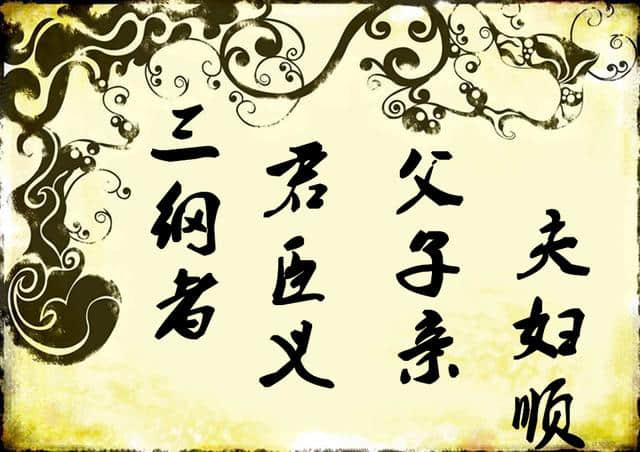 三纲者
君臣义
父子亲
夫妇顺